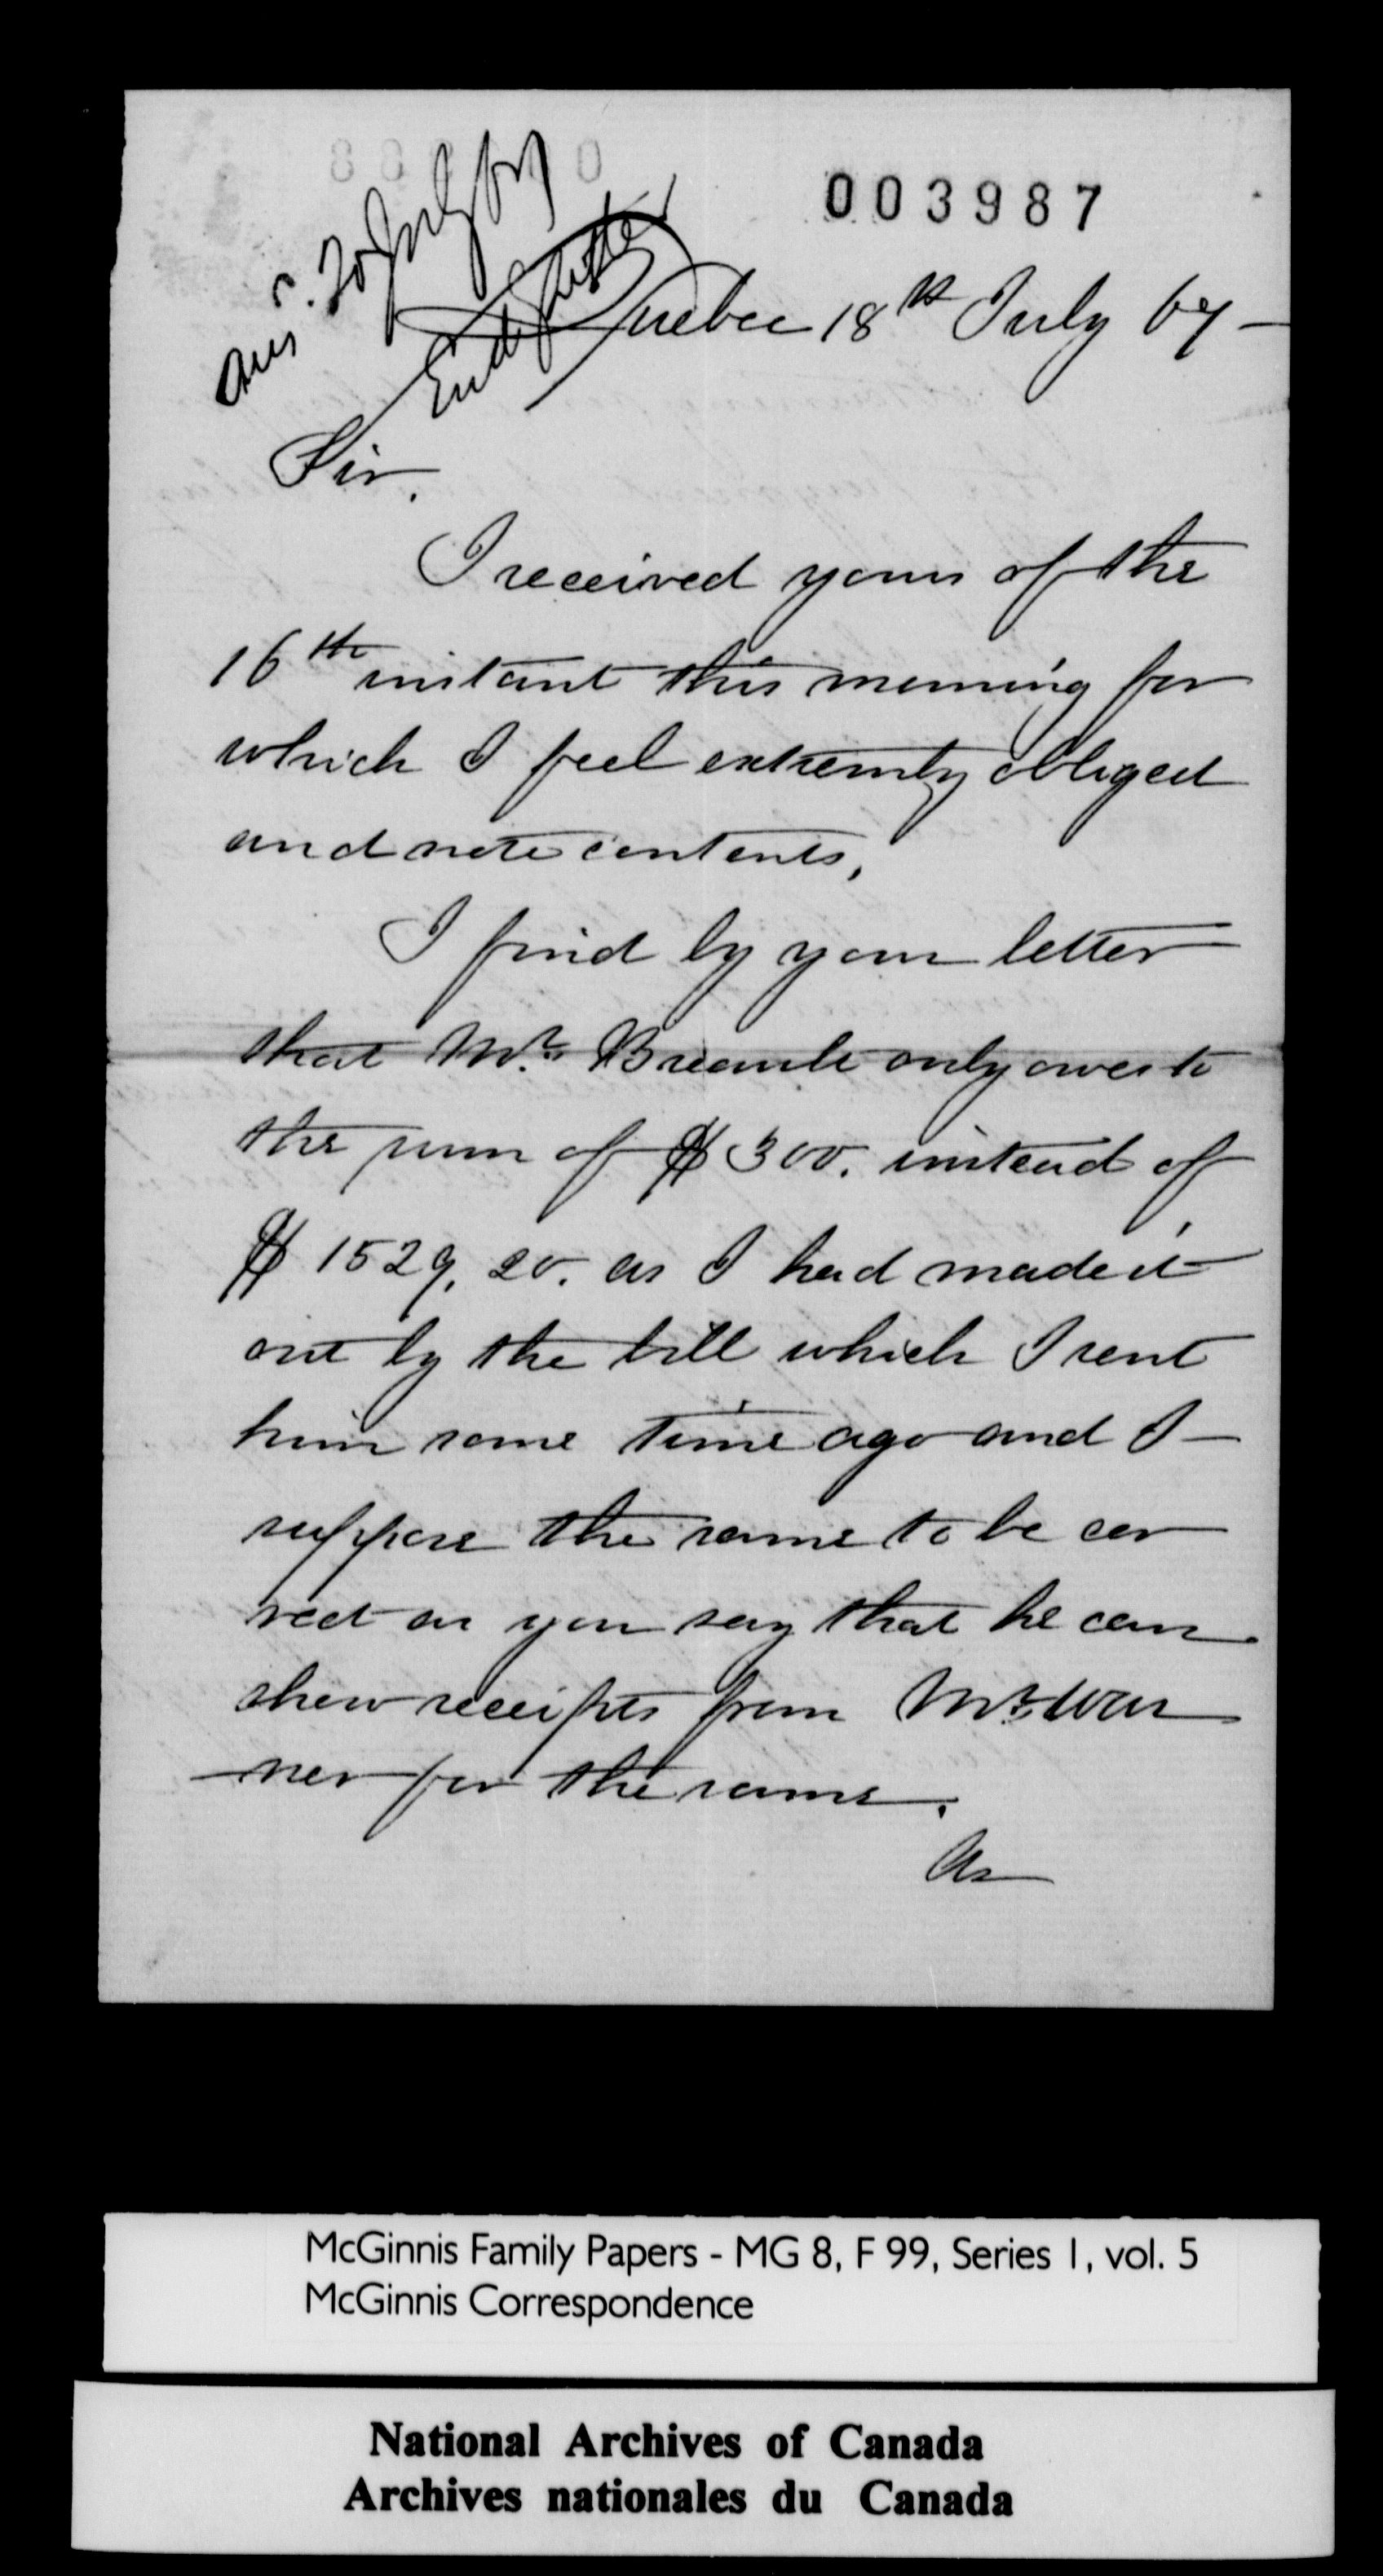 003987
ans. 20 July 67
Quebec 18th July 67 —
Sir,
I received yours of the
16th instant this morning for
which I feel extremely obliged
and note contents,
I find by your letter
that Mr. only owes to
the sum of $300. instead of
$1529,20. as I had made it
out by the bill which I sent
him some time ago and I —
suppose the same to be cor
rect as you say that he can
shew receipts from Mr. War
-ner for the same.
As
McGinnis Family Papers - MG 8, F 99, Series 1, vol. 5
McGinnis Correspondence
National Archives of Canada
Archives nationales du Canada